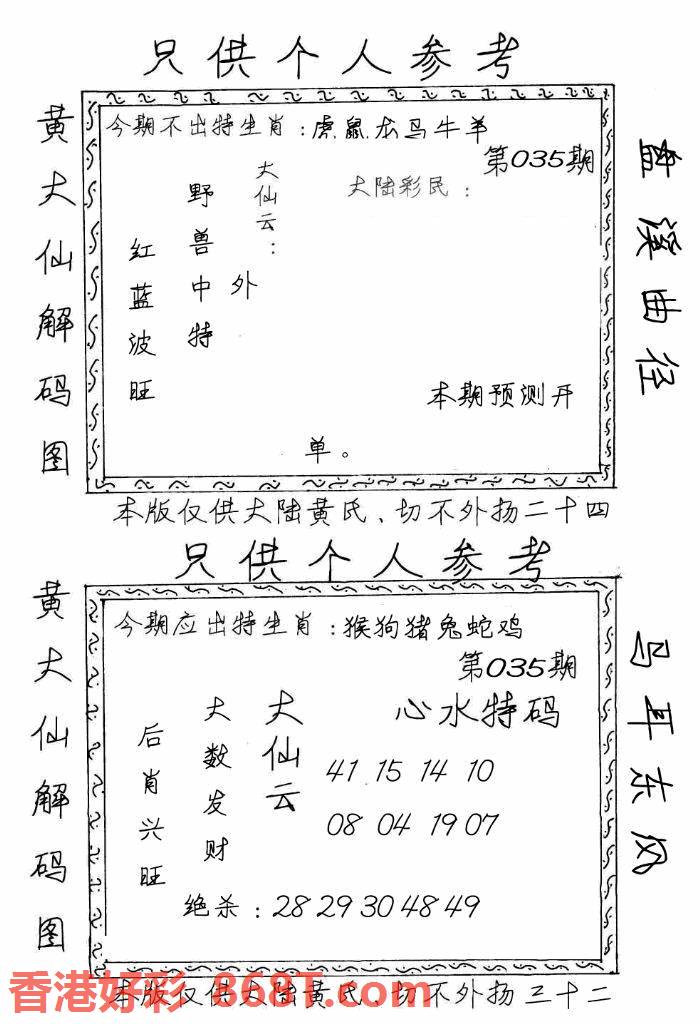 只供个人参考
黄大仙解码图
今期不出特生肖：虎鼠龙马牛羊
第035期
大陆彩民：
大仙云：
野兽中特
外
红蓝波旺
本期预测开
单。
盘溪曲径
本版仅供大陆黄氏、切不外扬二十四
只供个人参考
黄大仙解码图
今期应出特生肖：猴狗猪兔蛇鸡
第035期
心水特码
大仙云
大数发财
后肖兴旺
41 15 14 10
08 04 19 07
绝杀：28 29 30 48 49
马耳东风
本版仅供大陆黄氏、切不外扬三十二
香港好彩 868T.com